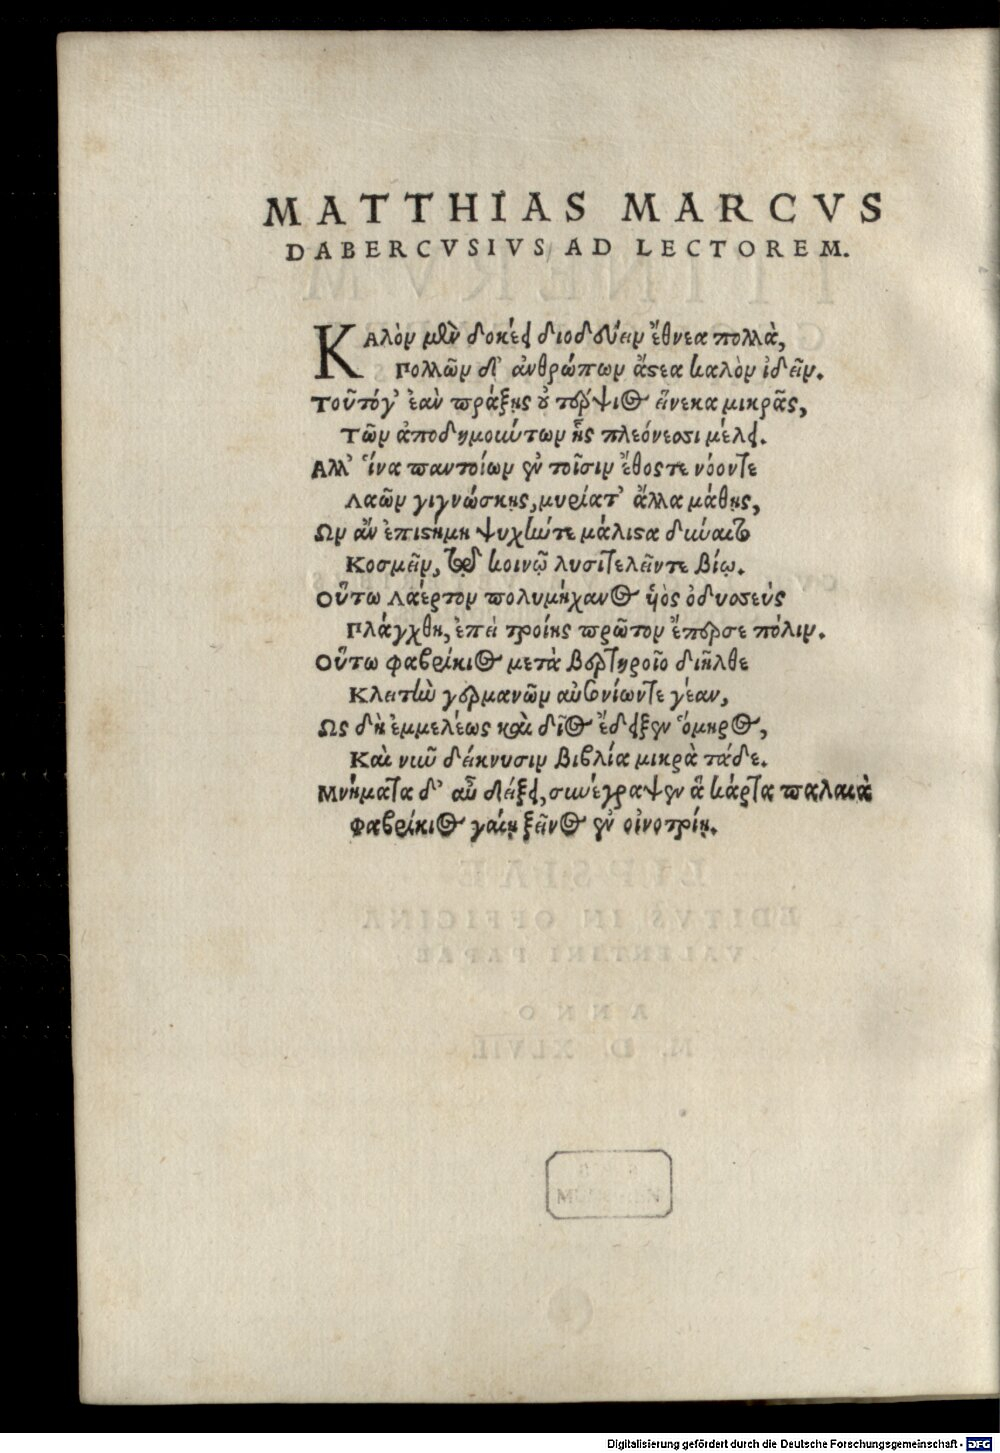 MATTHIAS MARCVS
DABERCVSIVS AD LECTOREM.
Καλὸν μὲν δοκέει διοδεύειν ἔθνεα πολλὰ,
Πολλῶν δ' ἀνθρώπων ἄστεα καλὸν ἰδεῖν.
Τοῦτό γ' ἐαν πράξῃς οὐ τέρψιος εἵνεκα μικρᾶς,
Τῶν ἀποδημούντων ᾗς πλεόνεσσι μέλει.
Αλλ' ἵνα παντοίων ἐν τοῖσιν ἔθος τε νόον τε
Λαῶν γιγνώσκῃς, μυρία τ' ἄλλα μάθῃς,
Ων ἂν ἐπιστήμη ψυχήν τε μάλιστα δύναιτο
Κοσμεῖν, τῷδε κοινῷ λυσιτελεῖν τε βίῳ.
Οὕτω Λαέρτου πολυμήχανος ὑὸς ὀδυσσεύς
Πλάγχθη, ἐπεὶ τροίης πρῶτον ἔπερσε πόλιν.
Οὕτω φαβρίκιος μετὰ βερτηροῖο διῆλθε
Κλειτὼ γερμανῶν αὐσονίων τε γέαν,
Ως δὴ ἐμμελέως καὶ δῖος ἔδειξεν ὁμηρος,
Καὶ νῦν δείκνυσιν βιβλία μικρὰ τάδε.
Μνήματα δ' αὖ δείξει, συνέγραψεν ἃ κάρτα παλαιὰ
Φαβρίκιος γαίῃ ξεῖνος ἐν οἰνοτρίῃ.
Digitalisierung gefördert durch die Deutsche Forschungsgemeinschaft - DFG